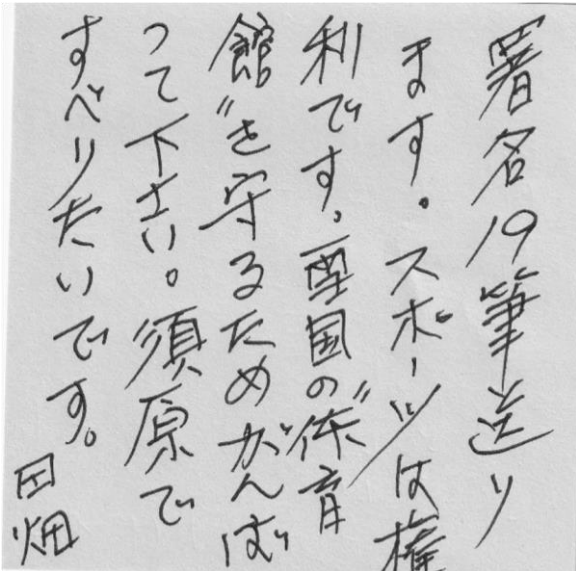 署名19筆送り
ます。スポーツは権
利です。雪国の〝体育
館〟を守るためがんば
って下さい。須原で
すべりたいです。
田畑